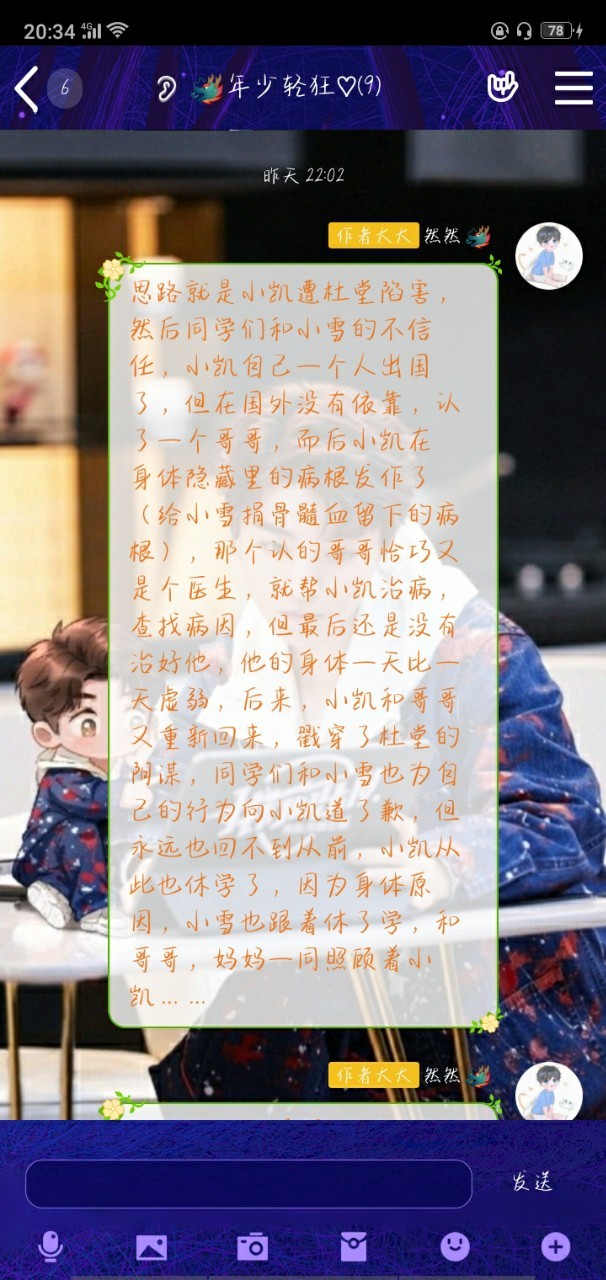 20:34
4G
78
6
年少轻狂♡(9)
昨天 22:02
作者大大 然然
思路就是小凯遭杜堂陷害，
然后同学们和小雪的不信
任，小凯自己一个人出国
了，但在国外没有依靠，认
了一个哥哥，而后小凯在
身体隐藏里的病根发作了
（给小雪捐骨髓血留下的病
根），那个认的哥哥恰巧又
是个医生，就帮小凯治病，
查找病因，但最后还是没有
治好他，他的身体一天比一
天虚弱，后来，小凯和哥哥
又重新回来，戳穿了杜堂的
阴谋，同学们和小雪也为自
己的行为向小凯道了歉，但
永远也回不到从前，小凯从
此也休学了，因为身体原
因，小雪也跟着休了学，和
哥哥，妈妈一同照顾着小
凯……
作者大大 然然
发送